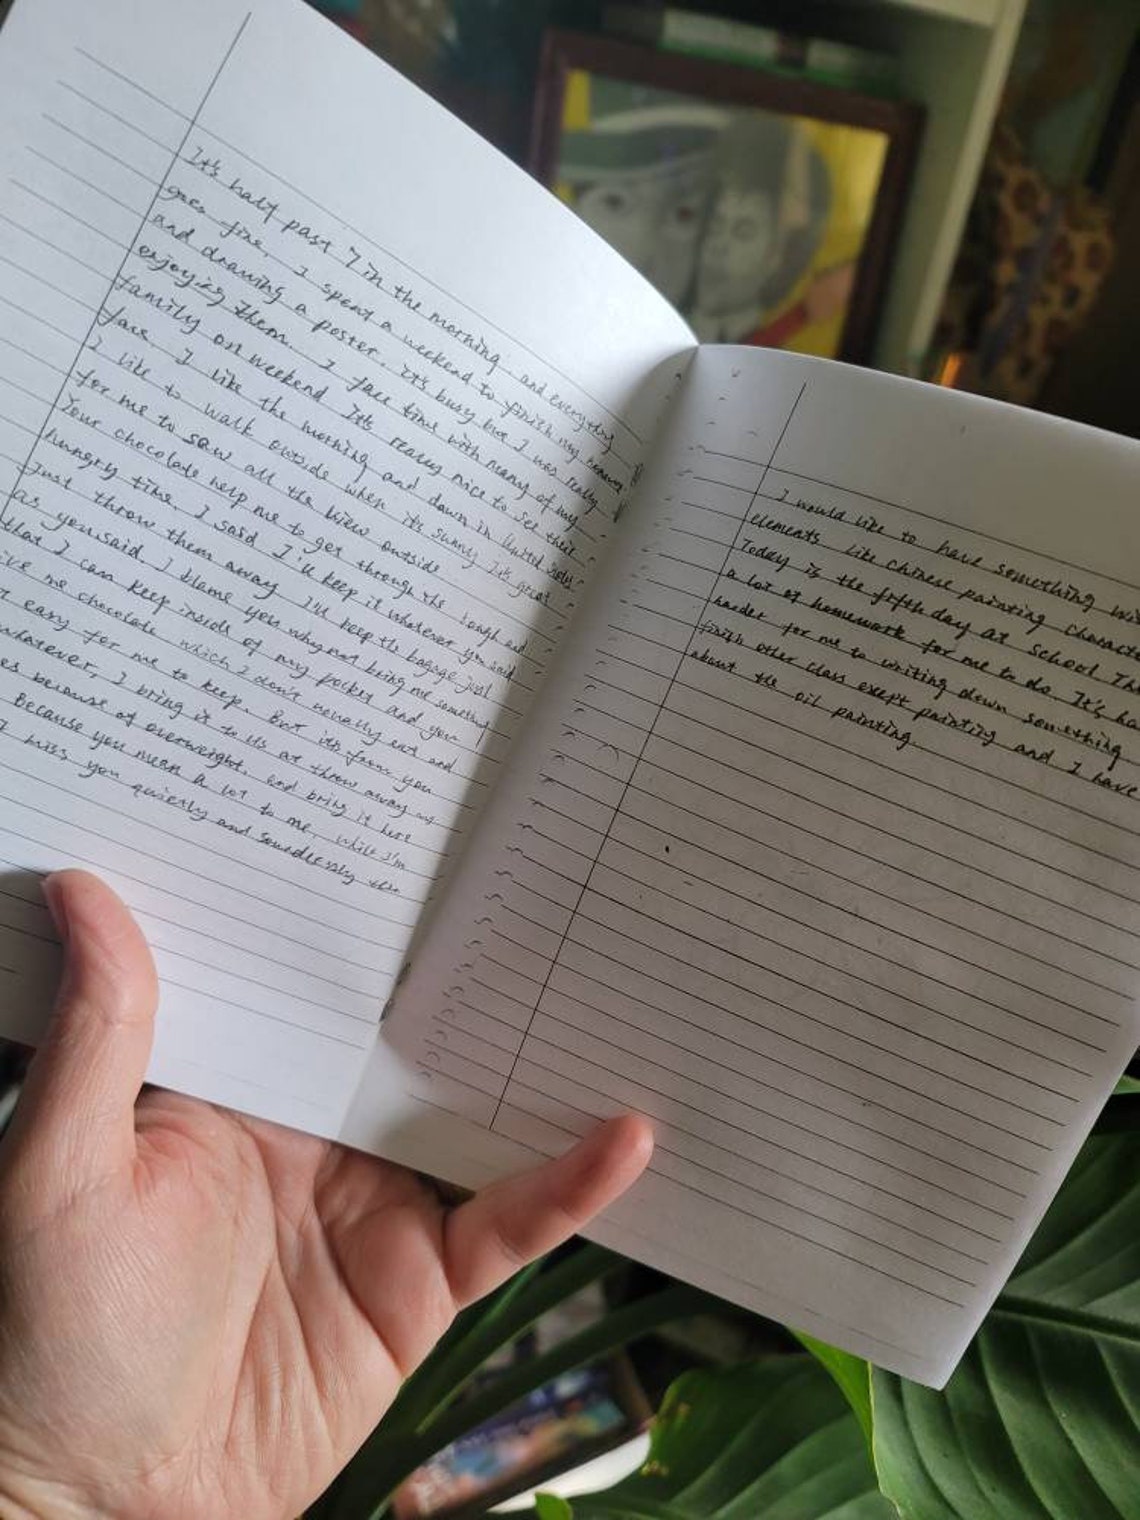 It's half past 7 in the morning, and everything
goes fine, I spent a weekend to finish my
and drawing a poster. It's busy but I was really
enjoying them. I face time with many of my
family on weekend It's really nice to see their
face I like the morning and dawn in United
I like to walk outside when its sunny It's great
for me to saw all the view outside.
Your chocolate help me to get through the tough and
hungry time, I said I'll keep it whatever you said
Just throw them away I'll keep the bagage just
as you said. I blame you why not being me something
that I can keep inside of my pocket and you
me chocolate which I don't usually eat and
easy for me to keep. But it's from you
whatever, I bring it to US at throw away
because of overweight. and bring it here
Because you mean a lot to me, while I'm
miss you quietly and soundlessly
I would like to have something
elements like chinese painting
Today is the fifth day at school
a lot of homework for me to do. It's
harder for me to writing down something
finish other class exept painting and I have
about the oil painting.